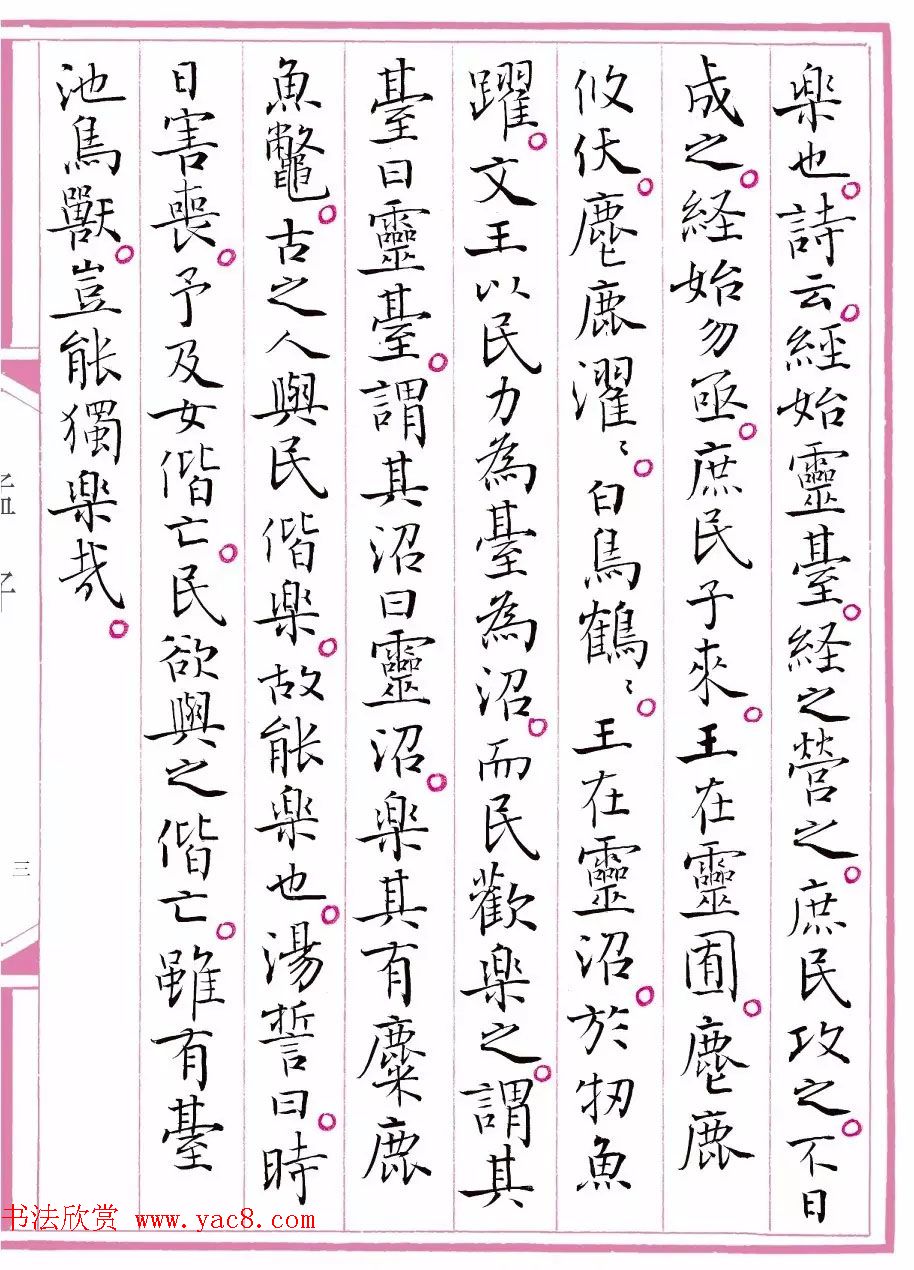 樂也。詩云。經始靈臺。経之營之。庶民攻之。不日
成之。経始勿亟。庶民子來。王在靈囿。麀鹿
攸伏。麀鹿濯〻。白鳥鶴〻。王在靈沼。於牣魚
躍。文王以民力為臺為沼。而民歡樂之。謂其
臺曰靈臺。謂其沼曰靈沼。樂其有麋鹿
魚鼈。古之人與民偕樂。故能樂也。湯誓曰。時
日害喪。予及女偕亡。民欲與之偕亡。雖有臺
池鳥獸。豈能獨樂哉。
孟子
三
书法欣赏 www.yac8.com